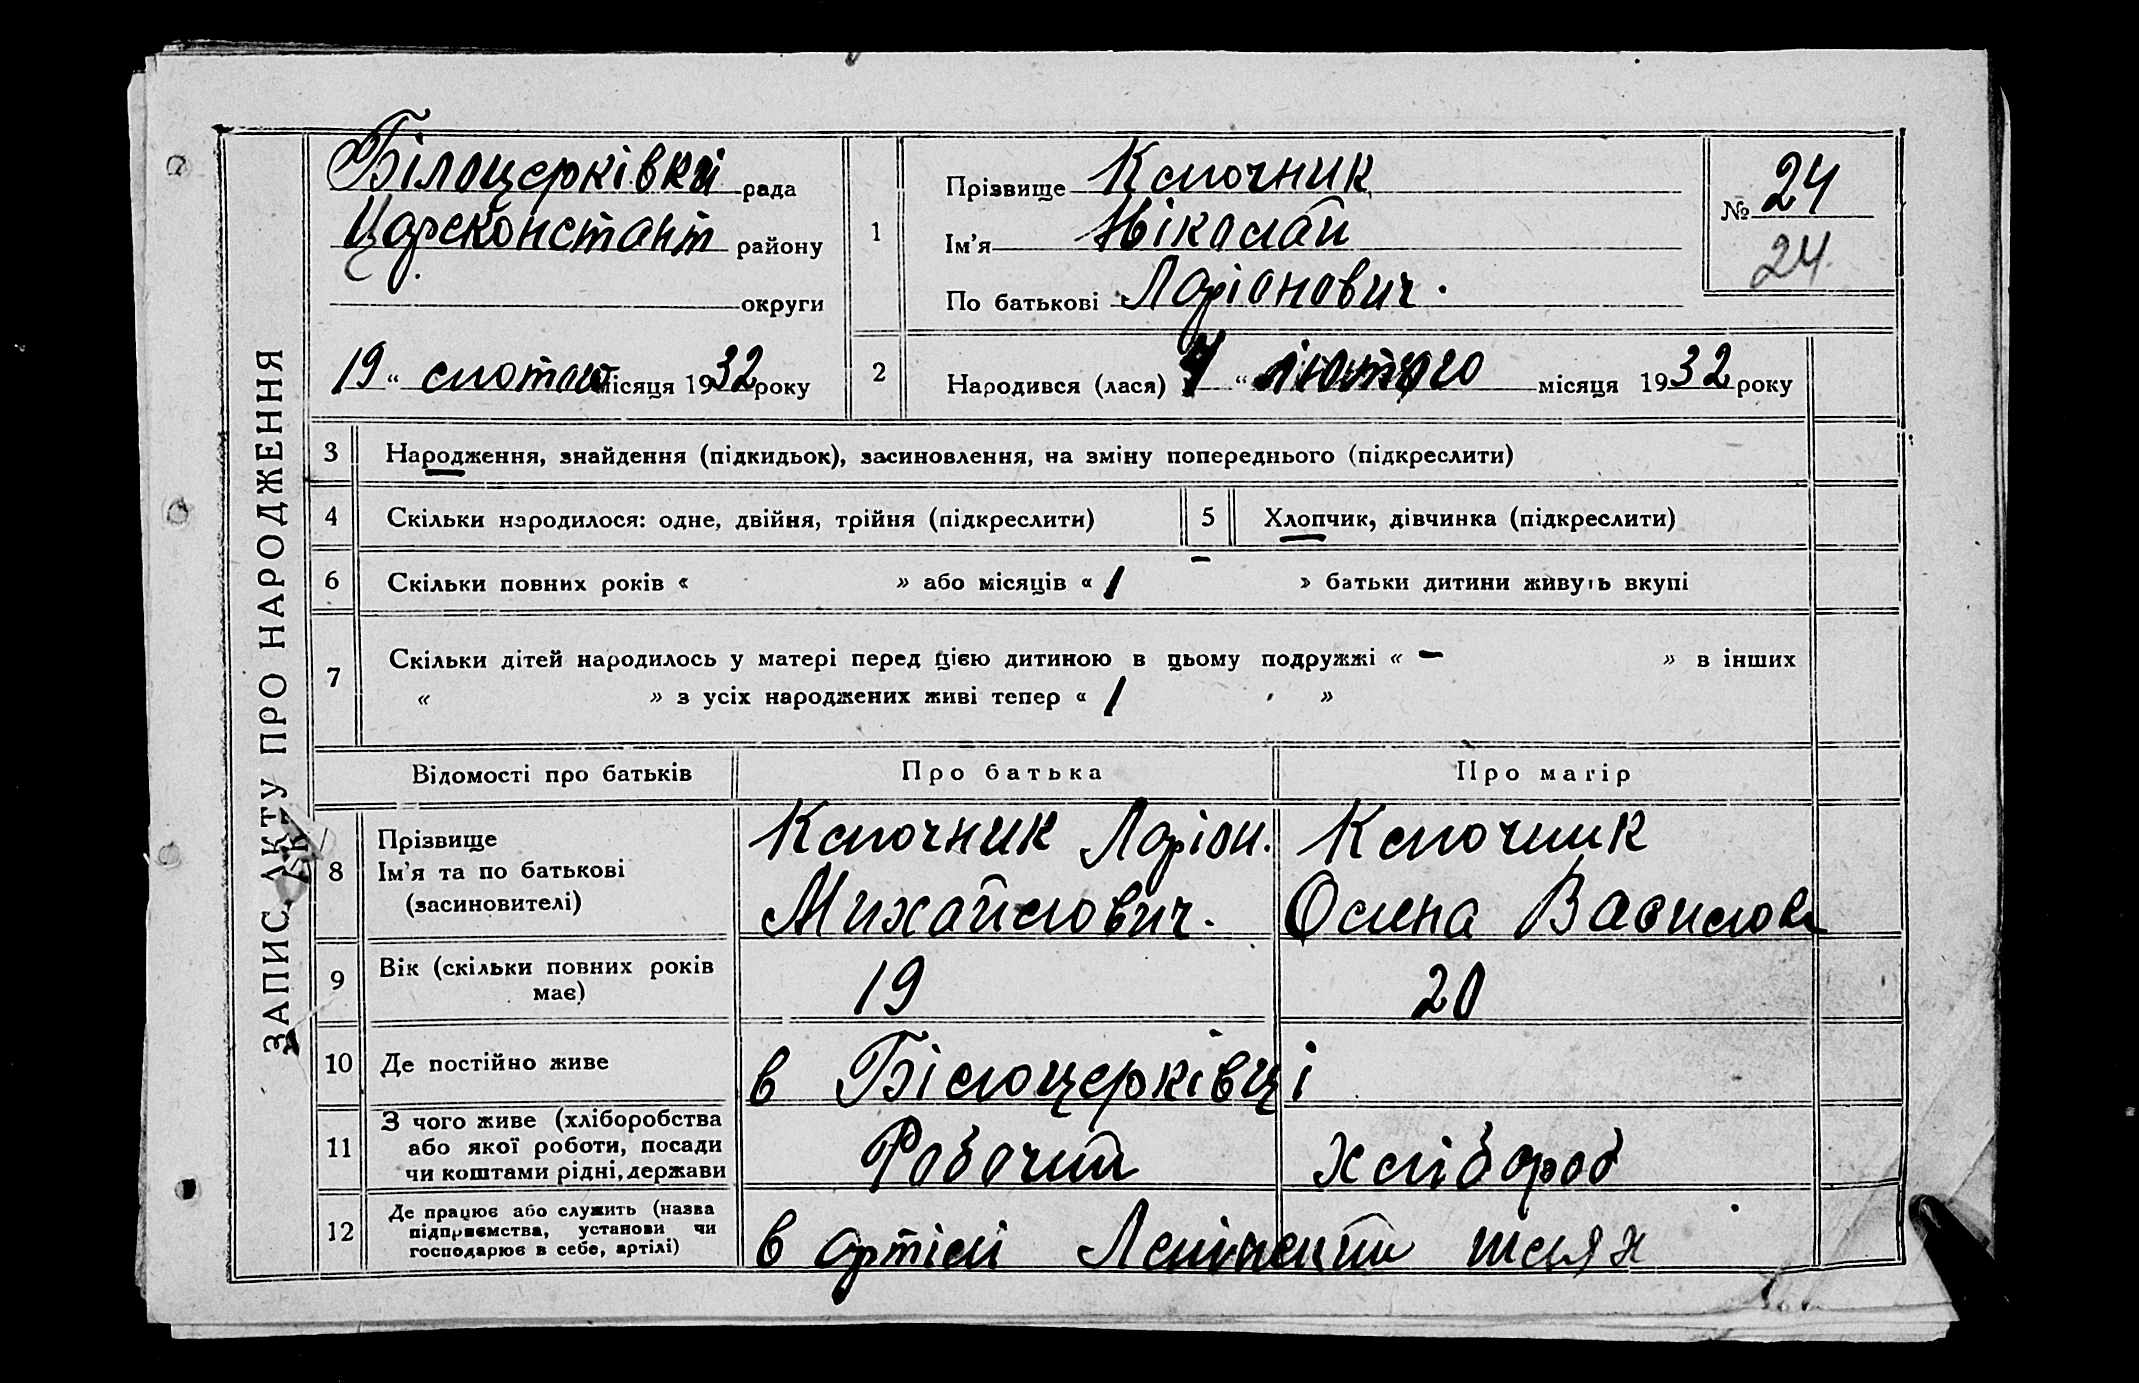 ЗАПИС АКТУ ПРО НАРОДЖЕННЯ
Білоцерківка рада
Царсконстант району
округи
19 “ лютого місяця 1932 року
1
Прізвище Ключник
Ім’я Ніколай
По батькові Ларіонович.
№ 24
24.
2
Народився (лася) “ лютого місяця 1932 року
3 Народження, знайдення (підкидьок), засиновлення, на зміну попереднього (підкреслити)
4 Скільки народилося: одне, двійня, трійня (підкреслити)
5 Хлопчик, дівчинка (підкреслити)
6 Скільки повних років « » або місяців « 1 » батьки дитини живуть вкупі
7 Скільки дітей народилось у матері перед цією дитиною в цьому подружжі « – » в інших
« » з усіх народжених живі тепер « 1 »
Відомості про батьків
Про батька
Про матір
8 Прізвище
Ім’я та по батькові
(засиновителі)
Ключник Ларіон.
Михайлович.
Ключник
Олена Василов
9 Вік (скільки повних років
має)
19
20
10 Де постійно живе
в Білоцерківці
11 З чого живе (хліборобства
або якої роботи, посади
чи коштами рідні, держави
Робочий
Хлібороб
12 Де працює або служить (назва
підприємства, установи чи
господарює в себе, артілі)
в артілі Ленінский шлях